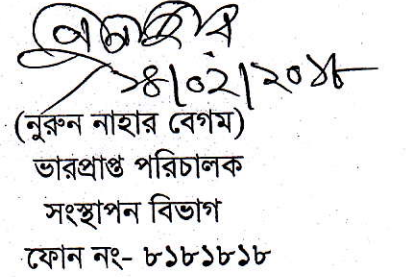 ১৪/০২/২০১৮
(নুরুন নাহার বেগম)
ভারপ্রাপ্ত পরিচালক
সংস্থাপন বিভাগ
ফোন নং- ৮১৮১৮১৮